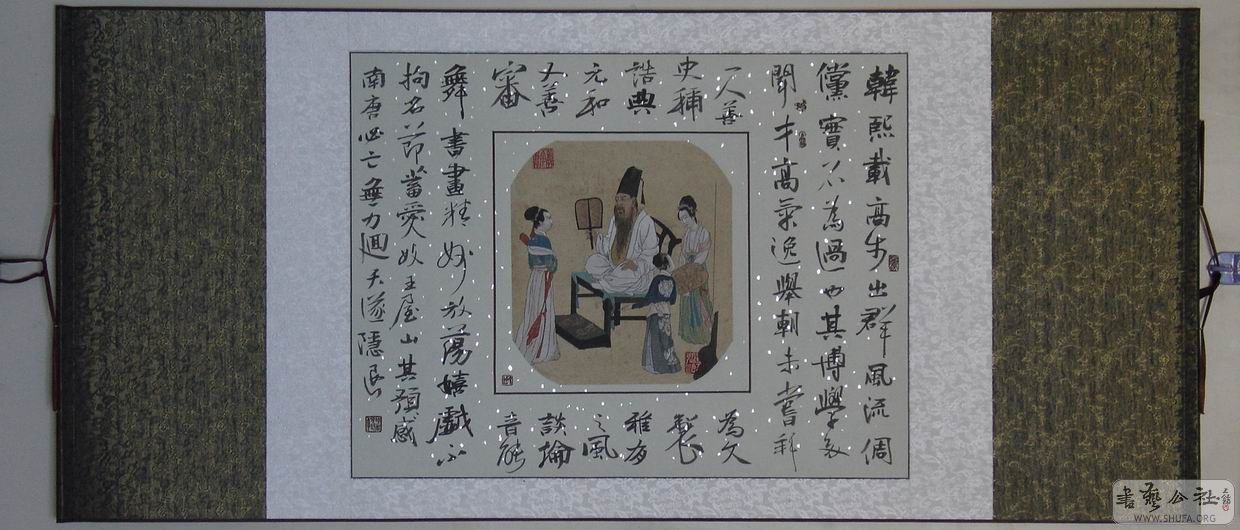 韓熙載高步出群風流倜
儻實不為過也其博學多
聞才高氣逸舉朝未嘗拜
一人善為文
史稱製
誥典雅有
元和之風
又善談論
審音能
舞書畫精妙放蕩嬉戲不
拘名節蓄愛妓王屋山其預感
南唐必亡無力迴天遂隱退
書藝公社
WWW.SHUFA.ORG